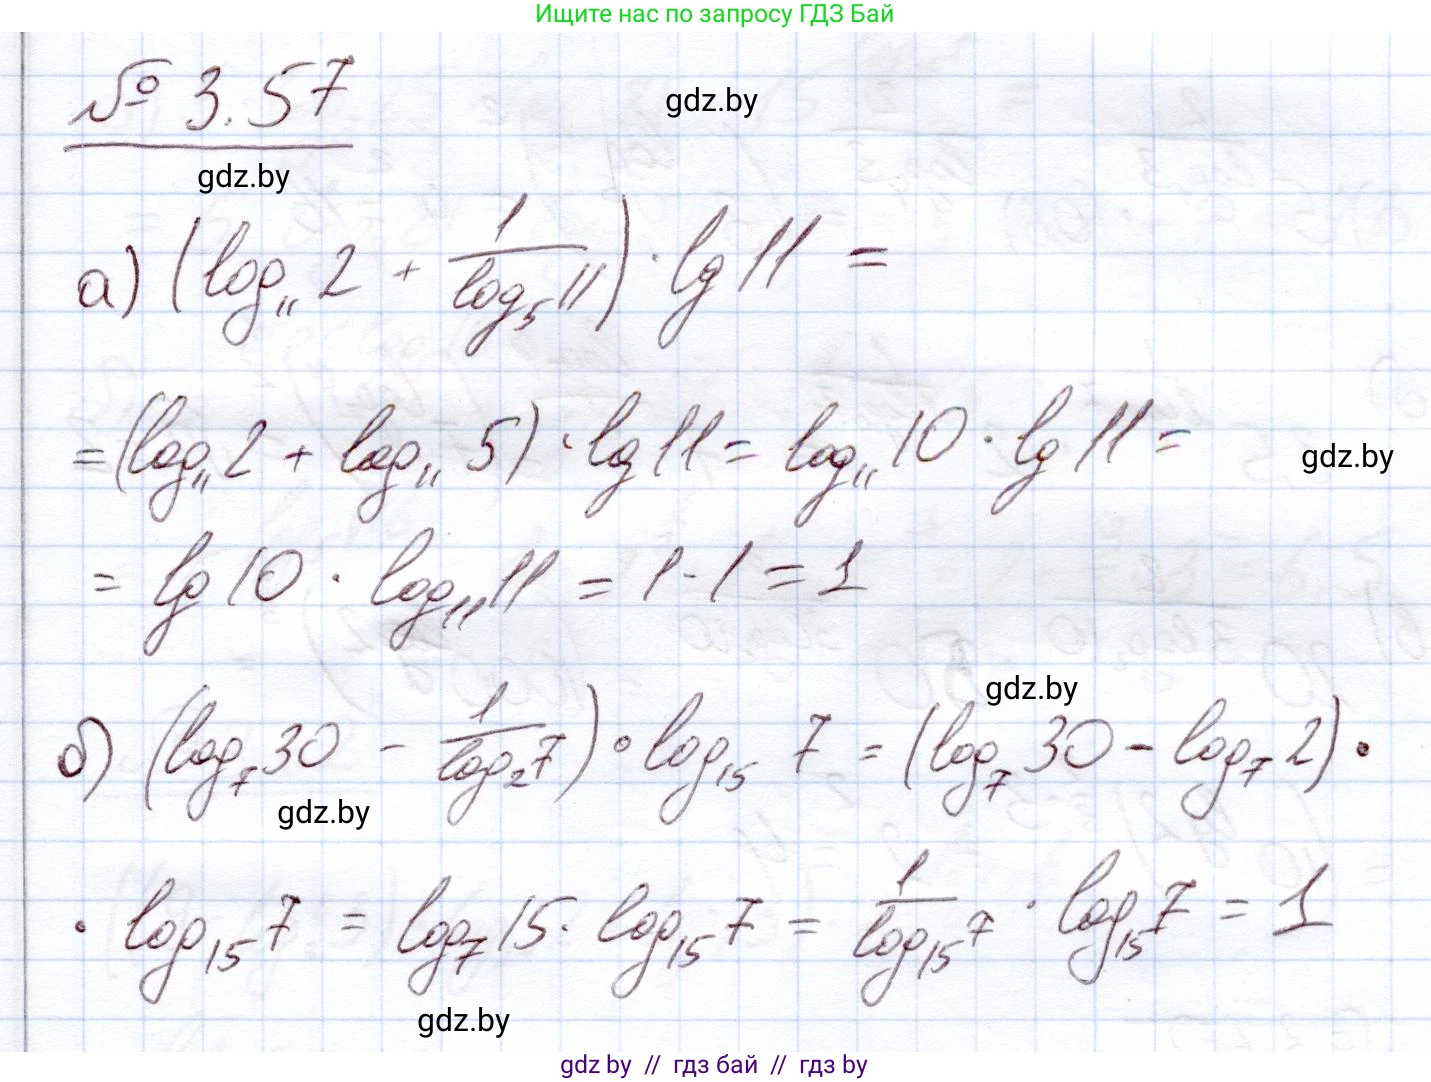 Ищите нас по запросу ГДЗ Бай
№ 3.57
gdz.by
gdz.by
а) (log₁₁ 2 + 1/(log₅ 11)) · lg 11 =
= (log₁₁ 2 + log₁₁ 5) · lg 11 = log₁₁ 10 · lg 11 =
gdz.by
= lg 10 · log₁₁ 11 = 1 · 1 = 1
gdz.by
б) (log₇ 30 - 1/(log₂ 7)) · log₁₅ 7 = (log₇ 30 - log₇ 2) ·
gdz.by
· log₁₅ 7 = log₇ 15 · log₁₅ 7 = 1/(log₁₅ 7) · log₁₅ 7 = 1
gdz.by
gdz by // гдз бай // гдз by